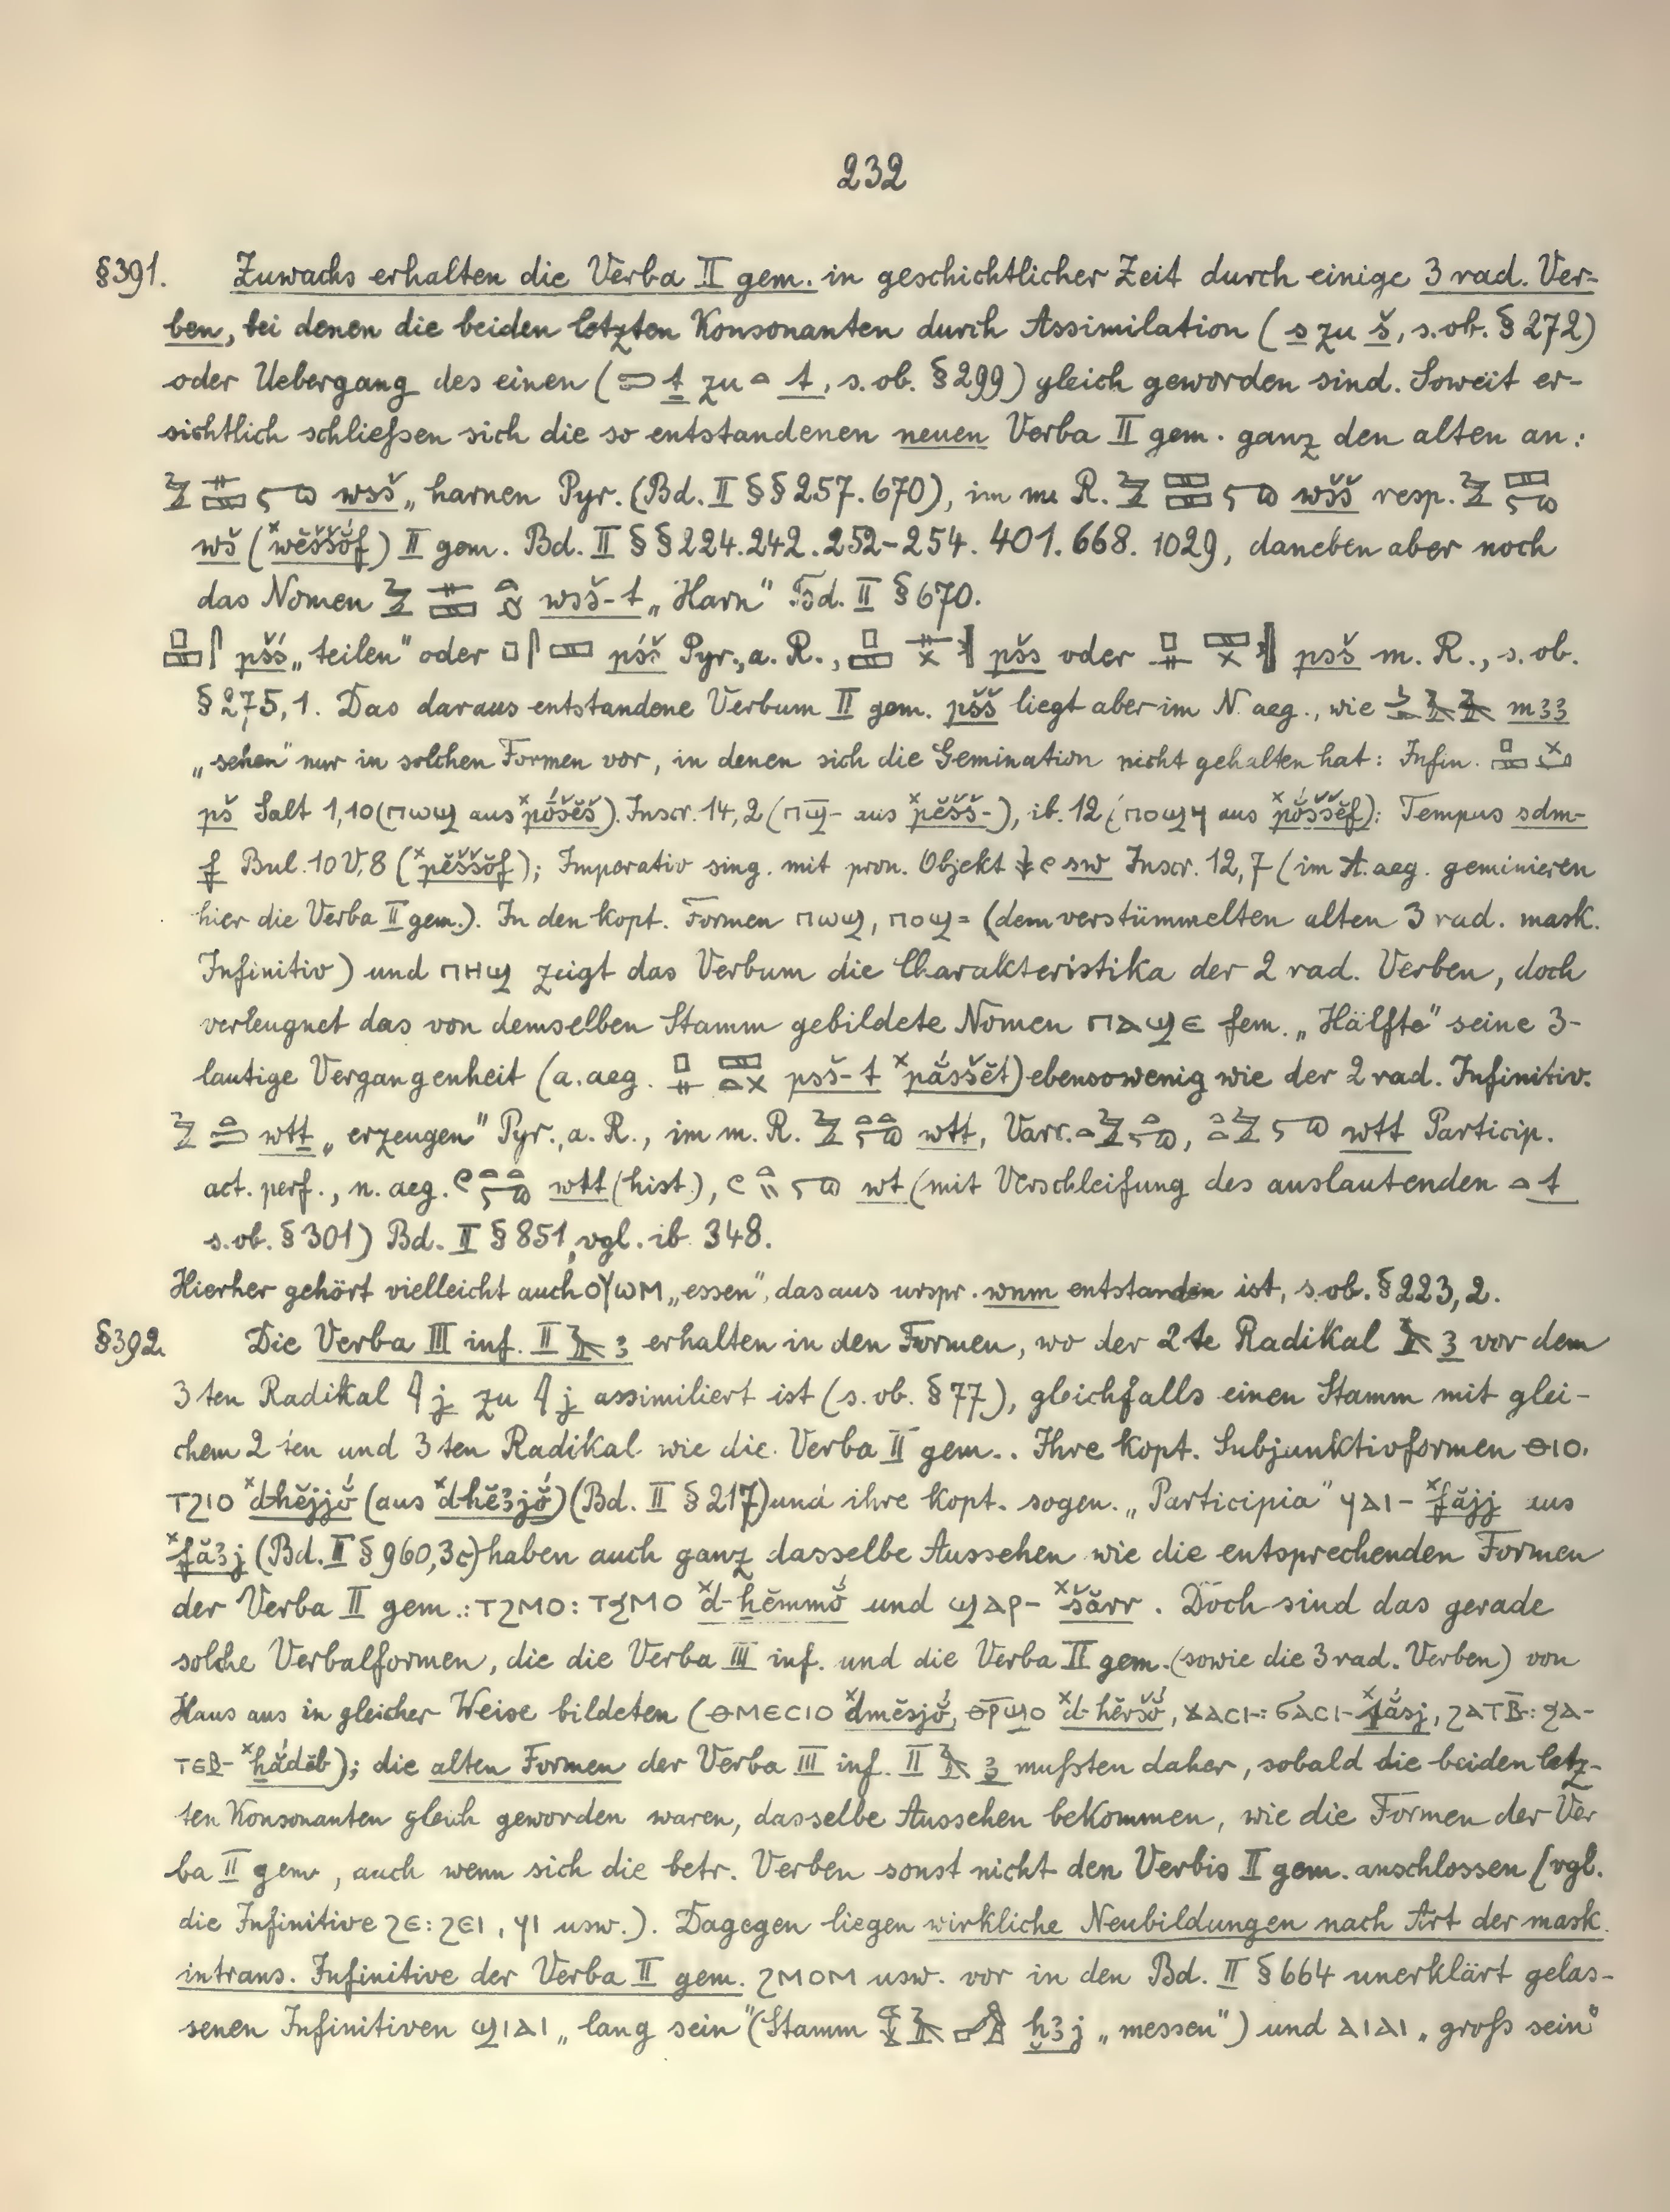 232
§391. Zuwachs erhalten die Verba II gem. in geschichtlicher Zeit durch einige 3 rad. Ver-
ben, bei denen die beiden letzten Konsonanten durch Assimilation (s zu š, s. ob. § 272)
oder Uebergang des einen (𓍿 ṯ zu 𓏏 t, s. ob. § 299) gleich geworden sind. Soweit er-
sichtlich schließen sich die so entstandenen neuen Verba II gem. ganz den alten an:
wsš „harnen Pyr. (Bd. II §§ 257. 670), im m. R. wšš resp.
wš (ˣwĕššŏ́f) II gem. Bd. II §§ 224. 242. 252-254. 401. 668. 1029, daneben aber noch
das Nomen wsš-t „Harn" Bd. II § 670.
pšś „teilen" oder pśš Pyr., a. R., pšs oder psš m. R., s. ob.
§ 275, 1. Das daraus entstandene Verbum II gem. pšš liegt aber im N. aeg., wie m33
„sehen" nur in solchen Formen vor, in denen sich die Gemination nicht gehalten hat: Infin.
pš Salt 1,10 (ⲡⲱϣ aus ˣpṓšĕš). Inscr. 14, 2 (ⲡϣ̅- aus ˣpĕšš-), ib. 12 (ⲡⲟϣϥ aus ˣpŏ́ššĕf): Tempus sdm-
f Bul. 10 V, 8 (ˣpĕššŏf); Imperativ sing. mit pron. Objekt sw Inscr. 12, 7 (im A. aeg. geminieren
hier die Verba II gem.). In den kopt. Formen ⲡⲱϣ, ⲡⲟϣ= (dem verstümmelten alten 3 rad. mask.
Infinitiv) und ⲡⲏϣ zeigt das Verbum die Charakteristika der 2 rad. Verben, doch
verleugnet das von demselben Stamm gebildete Nomen ⲡⲁϣⲉ fem. „Hälfte" seine 3-
lautige Vergangenheit (a. aeg. psš-t ˣpắššĕt) ebensowenig wie der 2 rad. Infinitiv.
wtṯ „erzeugen" Pyr., a. R., im m. R. wtt, Varr. wtt Particip.
act. perf., n. aeg. wtt (hist.), wt (mit Verschleifung des auslautenden 𓏏 t
s. ob. § 301) Bd. II § 851, vgl. ib. 348.
Hierher gehört vielleicht auch ⲟⲩⲱⲙ „essen", das aus urspr. wnm entstanden ist, s. ob. § 223, 2.
§392. Die Verba III inf. II 𓄿 3 erhalten in den Formen, wo der 2te Radikal 𓄿 3 vor dem
3ten Radikal 𓇋 j zu 𓇋 j assimiliert ist (s. ob. § 77), gleichfalls einen Stamm mit glei-
chem 2ten und 3ten Radikal wie die Verba II gem.. Ihre kopt. Subjunktivformen ⲑⲓⲟ.
ⲧϩⲓⲟ ˣd-hĕjjŏ́ (aus ˣd-hĕ3jŏ́) (Bd. II § 217) und ihre kopt. sogen. „Participia" ϥⲁⲓ- ˣfăjj aus
ˣfă3j (Bd. II § 960, 3c) haben auch ganz dasselbe Aussehen wie die entsprechenden Formen
der Verba II gem.: ⲧϩⲙⲟ: ⲧϧⲙⲟ ˣd-ḫĕmmŏ́ und ϣⲁⲣ- ˣšărr. Doch sind das gerade
solche Verbalformen, die die Verba III inf. und die Verba II gem. (sowie die 3 rad. Verben) von
Haus aus in gleicher Weise bildeten (ⲑⲙⲉⲥⲓⲟ ˣdmĕsjŏ́, ⲑⲣ̅ϣⲟ ˣd-hĕršŏ́, ϫⲁⲥⲓ-: ϭⲁⲥⲓ- ˣṯắsj, ϩⲁⲧⲃ̅-: ϧⲁ-
ⲧⲉⲃ- ˣḫắdĕb); die alten Formen der Verba III inf. II 𓄿 3 mußten daher, sobald die beiden letz-
ten Konsonanten gleich geworden waren, dasselbe Aussehen bekommen, wie die Formen der Ver
ba II gem, auch wenn sich die betr. Verben sonst nicht den Verbis II gem. anschlossen (vgl.
die Infinitive ϩⲉ: ϩⲉⲓ, ϥⲓ usw.). Dagegen liegen wirkliche Neubildungen nach Art der mask.
intrans. Infinitive der Verba II gem. ϩⲙⲟⲙ usw. vor in den Bd. II § 664 unerklärt gelas-
senen Infinitiven ϣⲓⲁⲓ „lang sein" (Stamm ḫ3j „messen") und ⲁⲓⲁⲓ „groß sein"